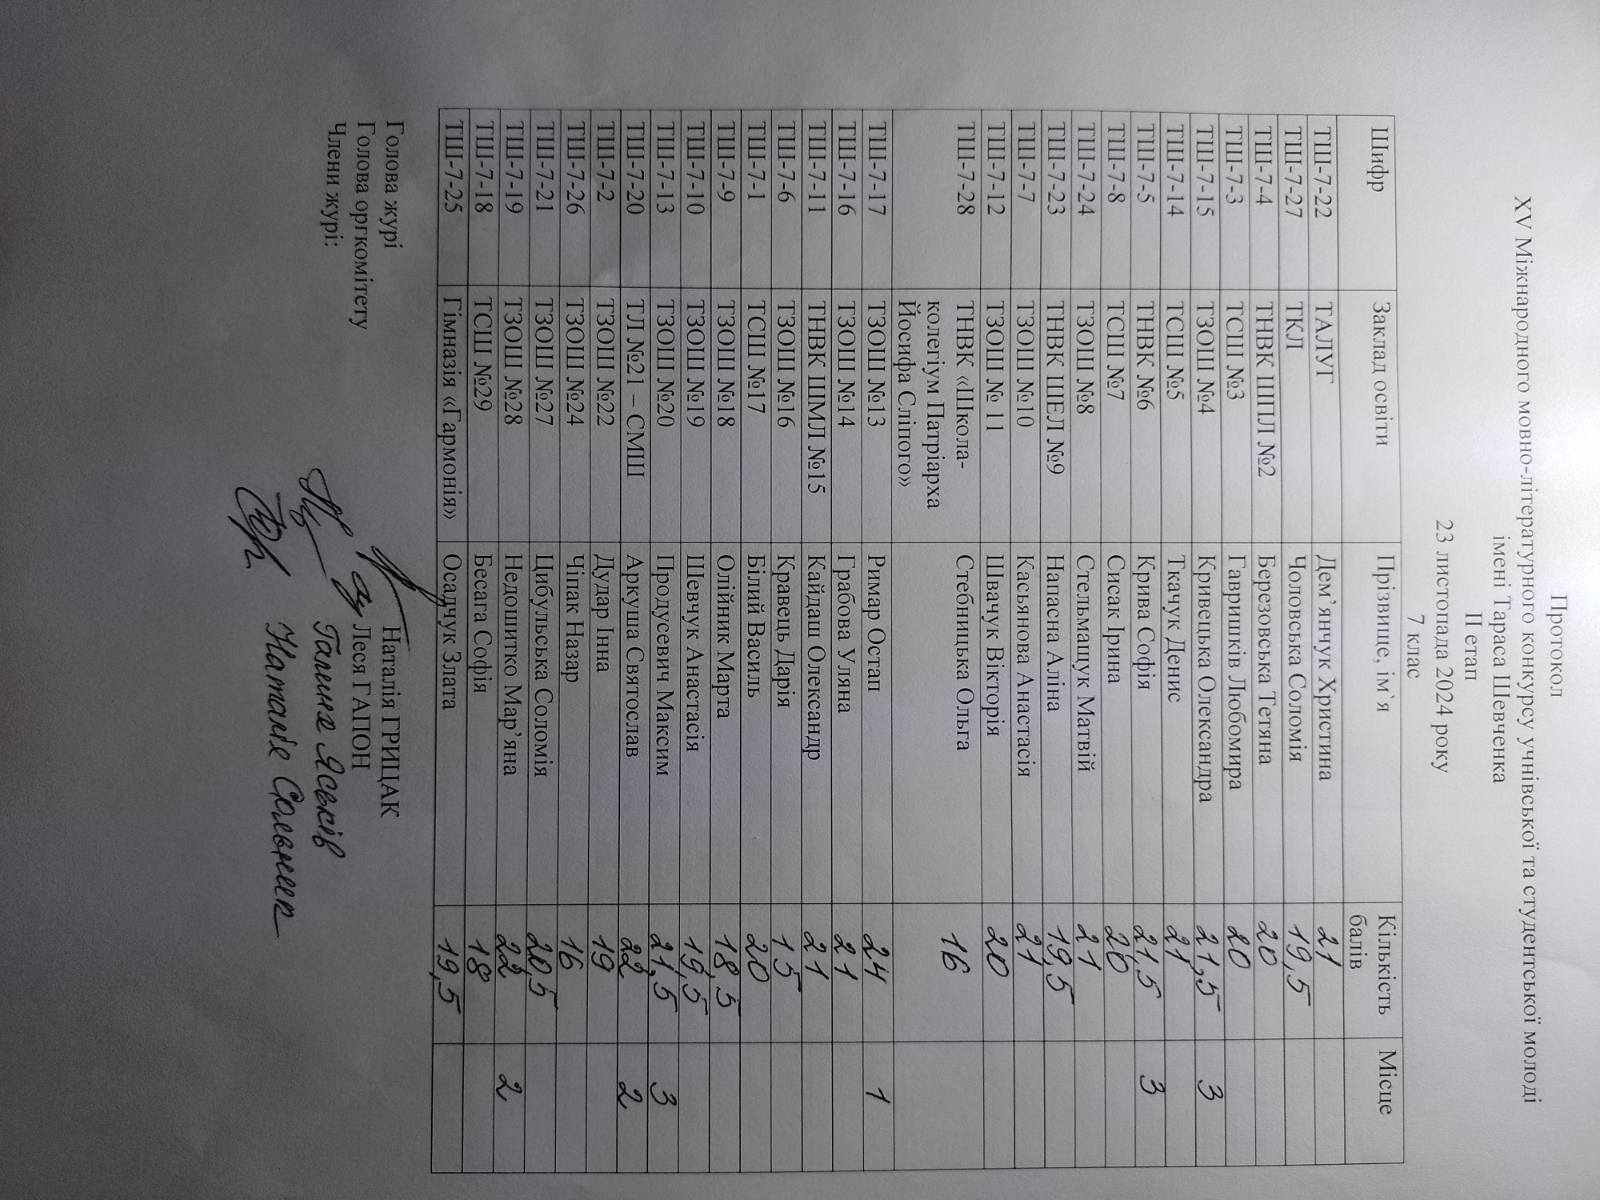 Протокол
XV Міжнародного мовно-літературного конкурсу учнівської та студентської молоді
імені Тараса Шевченка
ІІ етап
23 листопада 2024 року
7 клас
Шифр Заклад освіти Прізвище, ім`я Кількість балів Місце
ТШ-7-22 ТАЛУГ Дем’янчук Христина 21
ТШ-7-27 ТКЛ Чоловська Соломія 19,5
ТШ-7-4 ТНВК ШПЛ №2 Березовська Тетяна 20
ТШ-7-3 ТСШ №3 Гавришків Любомира 20
ТШ-7-15 ТЗОШ №4 Кривецька Олександра 21,5 3
ТШ-7-14 ТСШ №5 Ткачук Денис 21
ТШ-7-5 ТНВК №6 Крива Софія 21,5 3
ТШ-7-8 ТСШ №7 Сисак Ірина 20
ТШ-7-24 ТЗОШ №8 Стельмащук Матвій 21
ТШ-7-23 ТНВК ШЕЛ №9 Напасна Аліна 19,5
ТШ-7-7 ТЗОШ №10 Касьянова Анастасія 21
ТШ-7-12 ТЗОШ № 11 Швачук Вікторія 20
ТШ-7-28 ТНВК «Школа- Стебницька Ольга 16
колегіум Патріарха
Йосифа Сліпого»
ТШ-7-17 ТЗОШ №13 Римар Остап 24 1
ТШ-7-16 ТЗОШ №14 Грабова Уляна 21
ТШ-7-11 ТНВК ШМЛ №15 Кайдаш Олександр 21
ТШ-7-6 ТЗОШ №16 Кравець Дарія 15
ТШ-7-1 ТСШ №17 Білий Василь 20
ТШ-7-9 ТЗОШ №18 Олійник Марта 18,5
ТШ-7-10 ТЗОШ №19 Шевчук Анастасія 19,5
ТШ-7-13 ТЗОШ №20 Продусевич Максим 21,5 3
ТШ-7-20 ТЛ №21 – СМШ Аркуша Святослав 22 2
ТШ-7-2 ТЗОШ №22 Дудар Інна 19
ТШ-7-26 ТЗОШ №24 Чіпак Назар 16
ТШ-7-21 ТЗОШ №27 Цибульська Соломія 20,5
ТШ-7-19 ТЗОШ №28 Недошитко Мар’яна 22 2
ТШ-7-18 ТСШ №29 Бесага Софія 18
ТШ-7-25 Гімназія «Гармонія» Осадчук Злата 19,5
Голова журі Наталія ГРИЦАК
Голова оргкомітету Леся ГАПОН
Члени журі: Галина Яськів
Наталія